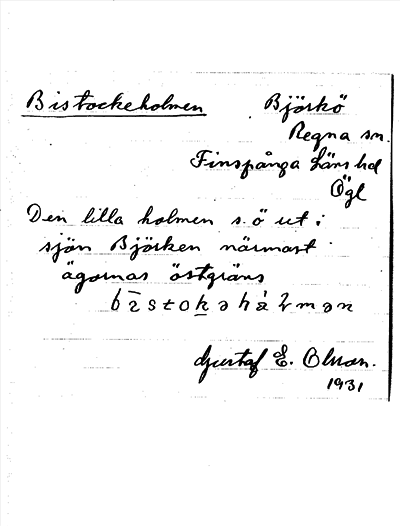 Bistockeholmen Björkö
Regna sn.
Finspånga Läns hd
Ögl
Den lilla holmen s. ö ut i
sjön Björken närmast
ägornas östgräns
Gustaf E.
1931